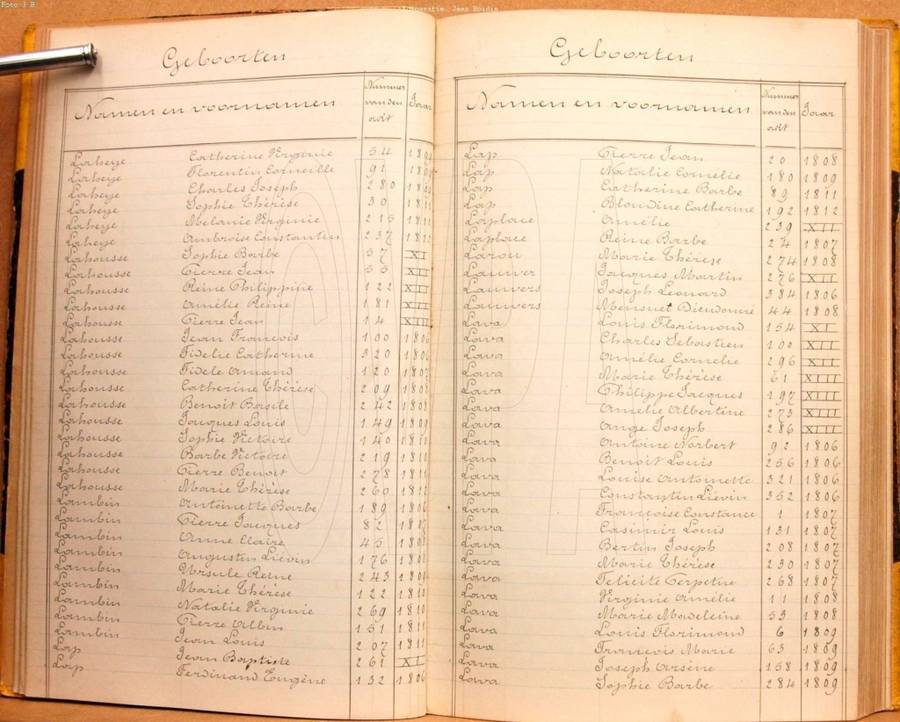 Foto J B
Jens Boidin
Geboorten
Namen en voornamen Nummer van den akt Jaar
Laheye Catherine Virginie 54
Laheye Florentin Corneille 91
Laheye Charles Joseph 280
Laheye Sophie Thérèse 30
Laheye Melanie Virginie 215
Laheye Ambroise Constantin 237
Lahousse Sophie Barbe 57 XI
Lahousse Pierre Jean 55 XII
Lahousse Reine Philippine 122 XII
Lahousse Amélie Reine 181 XII
Lahousse Pierre Jean 14 XIII
Lahousse Jean François 100 1806
Lahousse Fidelie Catherine 320 1806
Lahousse Fidele Amand 120 1807
Lahousse Catherine Thérèse 209 1808
Lahousse Benoit Basile 242 1808
Lahousse Jacques Louis 149 1809
Lahousse Sophie Victoire 140 1810
Lahousse Barbe Victoire 219 1810
Lahousse Pierre Benoit 278 1811
Lahousse Marie Thérèse 260 1812
Lambin Antoinette Barbe 189 1806
Lambin Pierre Jacques 82 1807
Lambin Anne Claire 45
Lambin Augustin Liévin 176
Lambin Ursule Reine 243 1809
Lambin Marie Thérèse 122 1810
Lambin Natalie Virginie 269 1810
Lambin Pierre Albin 151 1811
Lambin Jean Louis 207 1811
Lap Jean Baptiste 261 XI
Lap Ferdinand Eugène 132 1806
Geboorten
Namen en voornamen Nummer van den akt Jaar
Lap Pierre Jean 20 1808
Lap Natalie Cornélie 180 1809
Lap Catherine Barbe 89 1811
Lap Blondine Catherine 192 1812
Laplace Amélie 239 XII
Laplace Reine Barbe 24 1807
Larou Marie Thérèse 274 1808
Lauwer Jacques Martin 276 XII
Lauwers Joseph Leonard 384 1806
Lauwers Mensuet Dieudonné 44 1808
Lava Louis Florimond 154 XI
Lava Charles Sebastien 100 XII
Lava Amélie Cornelie 296 XII
Lava Marie Thérèse 61 XIII
Lava Philippe Jacques 197 XIII
Lava Amelie Albertine 273 XIII
Lava Ange Joseph 286 XIII
Lava Antoine Norbert 92 1806
Lava Benoit Louis 256 1806
Lava Louise Antoinette 321 1806
Lava Constantin Lievin 352 1806
Lava Françoise Constance 1 1807
Lava Casimir Louis 131 1807
Lava Bertin Joseph 208 1807
Lava Marie Thérèse 230 1807
Lava Felicité Perpetine 268 1807
Lava Virginie Amélie 11 1808
Lava Marie Madeleine 53 1808
Lava Louis Florimond 6 1809
Lava François Marie 63 1809
Lava Joseph Arsène 158 1809
Lava Sophie Barbe 284 1809